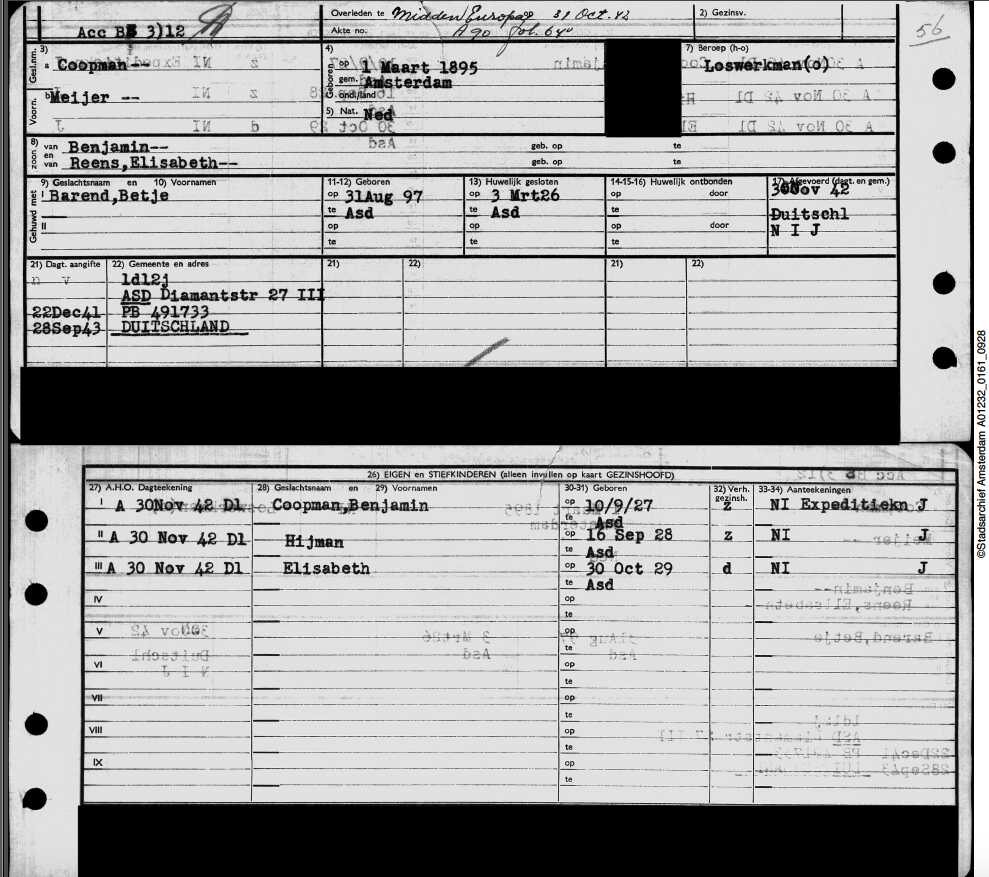 Acc BS 3)12
Overleden te Midden Europa 31 Oct. 42
Akte no. A 90 fol. 64
2) Gezinsv.
56
Gesl.nm. 3) a Coopman--
Voorn. b Meijer --
4) Geboren op 1 Maart 1895
gem. Amsterdam
ond./land
5) Nat. Ned
7) Beroep (h-o)
Loswerkman(o)
8) zoon van Benjamin-- geb. op te
en van Reens,Elisabeth-- geb. op te
Gehuwd met 9) Geslachtsnaam en 10) Voornamen 11-12) Geboren 13) Huwelijk gesloten 14-15-16) Huwelijk ontbonden 17) Afgevoerd (dagt. en gem.)
I Barend,Betje op 31Aug 97 op 3 Mrt26 op door 30Nov 42
te Asd te Asd te Duitschl
II op op op door N I J
te te te
21) Dagt. aangifte 22) Gemeente en adres 21) 22) 21) 22)
n v ldl2j
ASD Diamantstr 27 III
22Dec41 PB 491733
28Sep43 DUITSCHLAND
26) EIGEN en STIEFKINDEREN (alleen invullen op kaart GEZINSHOOFD)
27) A.H.O. Dagteekening 28) Geslachtsnaam en 29) Voornamen 30-31) Geboren 32) Verh. gezinsh. 33-34) Aanteekeningen
I A 30Nov 42 Dl Coopman,Benjamin op 10/9/27 z NI Expeditiekn J
te Asd
II A 30 Nov 42 Dl Hijman op 16 Sep 28 z NI J
te Asd
III A 30 Nov 42 Dl Elisabeth op 30 Oct 29 d NI J
te Asd
IV op
te
V op
te
VI op
te
VII op
te
VIII op
te
IX op
te
©Stadsarchief Amsterdam A01232_0161_0928